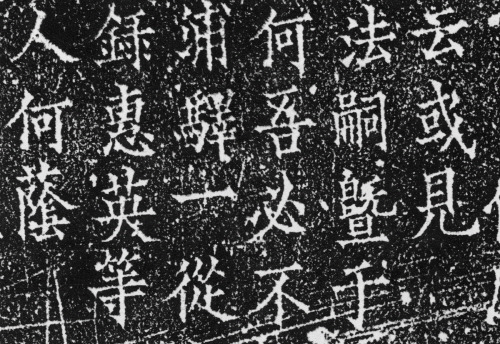 云或見
法嗣曁于
何吾必不
浦驛一從
録惠英等
人何蔭